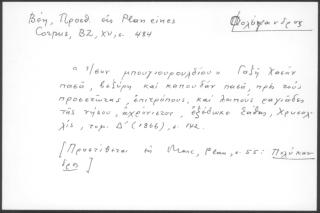 Βέη, Προσθ. εἰς Plan eines
Corpus, BZ, XV, σ. 484
Φολέγανδρος
"Ἴσον μπουγιουρουλδίου" Γαζῆ Χασὰν
πασᾶ, βεζύρη καὶ καπουδὰν πασᾶ, πρὸς τοὺς
προεστῶτας, ἐπιτρόπους, καὶ λοιποὺς ραγιάδες
τῆς νήσου, ἀχρόνιστον, ἐξέδωκε Σάθας, Χρυσαλ-
λίς, τομ. Δ' (1866), σ. 142.
[Προστίθεται εἰς Marc, Plan, σ. 55: Πολύκαν-
δρος]